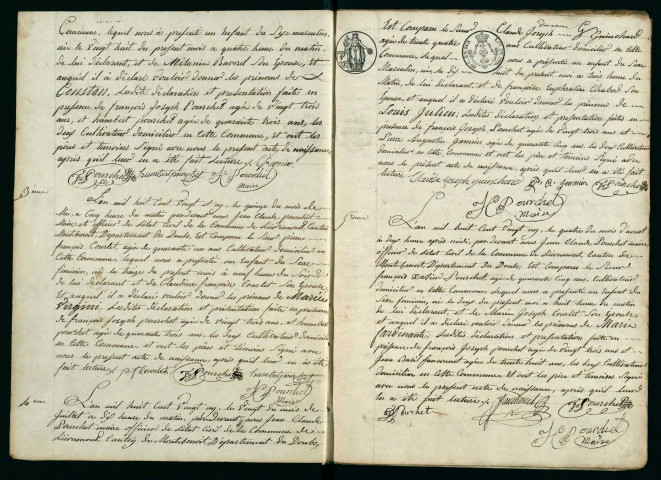 Commune, lequel nous a présenté un Enfant du Sexe masculin,
né le Vingt huit du présent mois a quatre heure du matin,
de lui Déclarant, et de Mélanie Bavorel Son Epouse, et
auquel il a déclaré vouloir donner les prénoms de
Constan. Lesdites déclaration et présentation faite en
présence de françois Joseph Pourchet agée de vingt trois
ans, et humbert pourchet agée de quarante trois ans, les
deux Cultivateur Domicilier en Cette Commune, et ont les
père et témoins Signé avec nous le présent acte de naissance,
après qu'il leur en a été fait lecture
JC Pourchet
Maire
3ème
L'an mil huit Cent Vingt et un, le quinze du mois de
Mai, a Cinq heure du matin pardevant nous Jean Claude pourchet
Maire et officier de l'état Civil de la Commune de Lievremont, Canton
Montbenoit, Département du Doubs, Est Comparu le Sieur
françois Courlet, agée de quarante un ans Cultivateur Domicilier en
Cette Commune, lequel nous a présenté un Enfant du Sexe
feminin, né le treize du present mois a neuf heure du Soir, de
de lui déclarant et de Claudine françoise Courlet Son Epouse,
Et auquel il a déclaré vouloir donner les prénoms de Marie
Virginie. Lesdites Déclaration et présentation faite, en presence
de françois Joseph pourchet agée de vingt trois ans, et humbert
pourchet agée de quarante trois ans, les deux Cultivateur Domicilier
en Cette Commune et ont les père et témoins Signé avec
nous le present acte de naissance, après qu'il leur en a été
fait lecture
JC Pourchet
Maire
4eme
L'an mil huit Cent Vingt un, le Vingt du mois de
Juillet a dix heure du matin, pardevant nous Jean Claude
Pourchet maire officier de l'état Civil de la Commune de
Lievremont, Canton de Montbenoit, Département du Doubs,
Est Comparu le Sieur Claude Joseph Guinchard
agée de trente quatre ans Cultivateur Domicilier en Cette
Commune, lequel nous a présenté un enfant du Sexe
Masculin, né le dix huit du présent mois a trois heure du
Matin, de lui Déclarant, et de françoise Euphrasine Chabod Son
Epouse, et auquel il a déclaré vouloir donner les prénoms de
Louis Julien; Lesdites Déclaration et présentation faites en
présence de françois Joseph Pourchet agée de vingt trois ans et
Pierre Augustin Garnier agée de quarante Cinq ans, les deux Cultivateur
Domicilier en Cette Commune, et ont les père et témoins Signé avec
nous le présent acte de naissance, après qu'il leur en a été fait
lecture
Claude Joseph guinchard
JC Pourchet
Maire
5ème
L'an mil huit Cent Vingt un, le quatre du mois d'aout
a deux heure après midi, par devant nous Jean Claude Pourchet maire
officier de l'état Civil de la Commune de Lievremont, Canton de
Montbenoit, Département du Doubs, Est Comparu le Sieur
françois Xavier Pourchet agée de quarante Cinq ans, Cultivateur
Domicilier en Cette Commune lequel nous a présenté un enfant du
Sexe feminin, né le deux du present mois a huit heure du matin
de lui Déclarant, et de Marie Joseph Courlet Son Epouse, et
auquel il a déclaré vouloir donner les prénoms de Marie
Lesdites Déclaration et présentation faite en
présence de françois Joseph pourchet agée de vingt trois ans et
Jean agée de trente huit ans, les deux Cultivateur
Domicilier en Cette Commune. Et ont les père et témoins Signé
avec nous le présent acte de naissance, après qu'il leur
en a été fait lecture
Pourchet
JC Pourchet
Maire